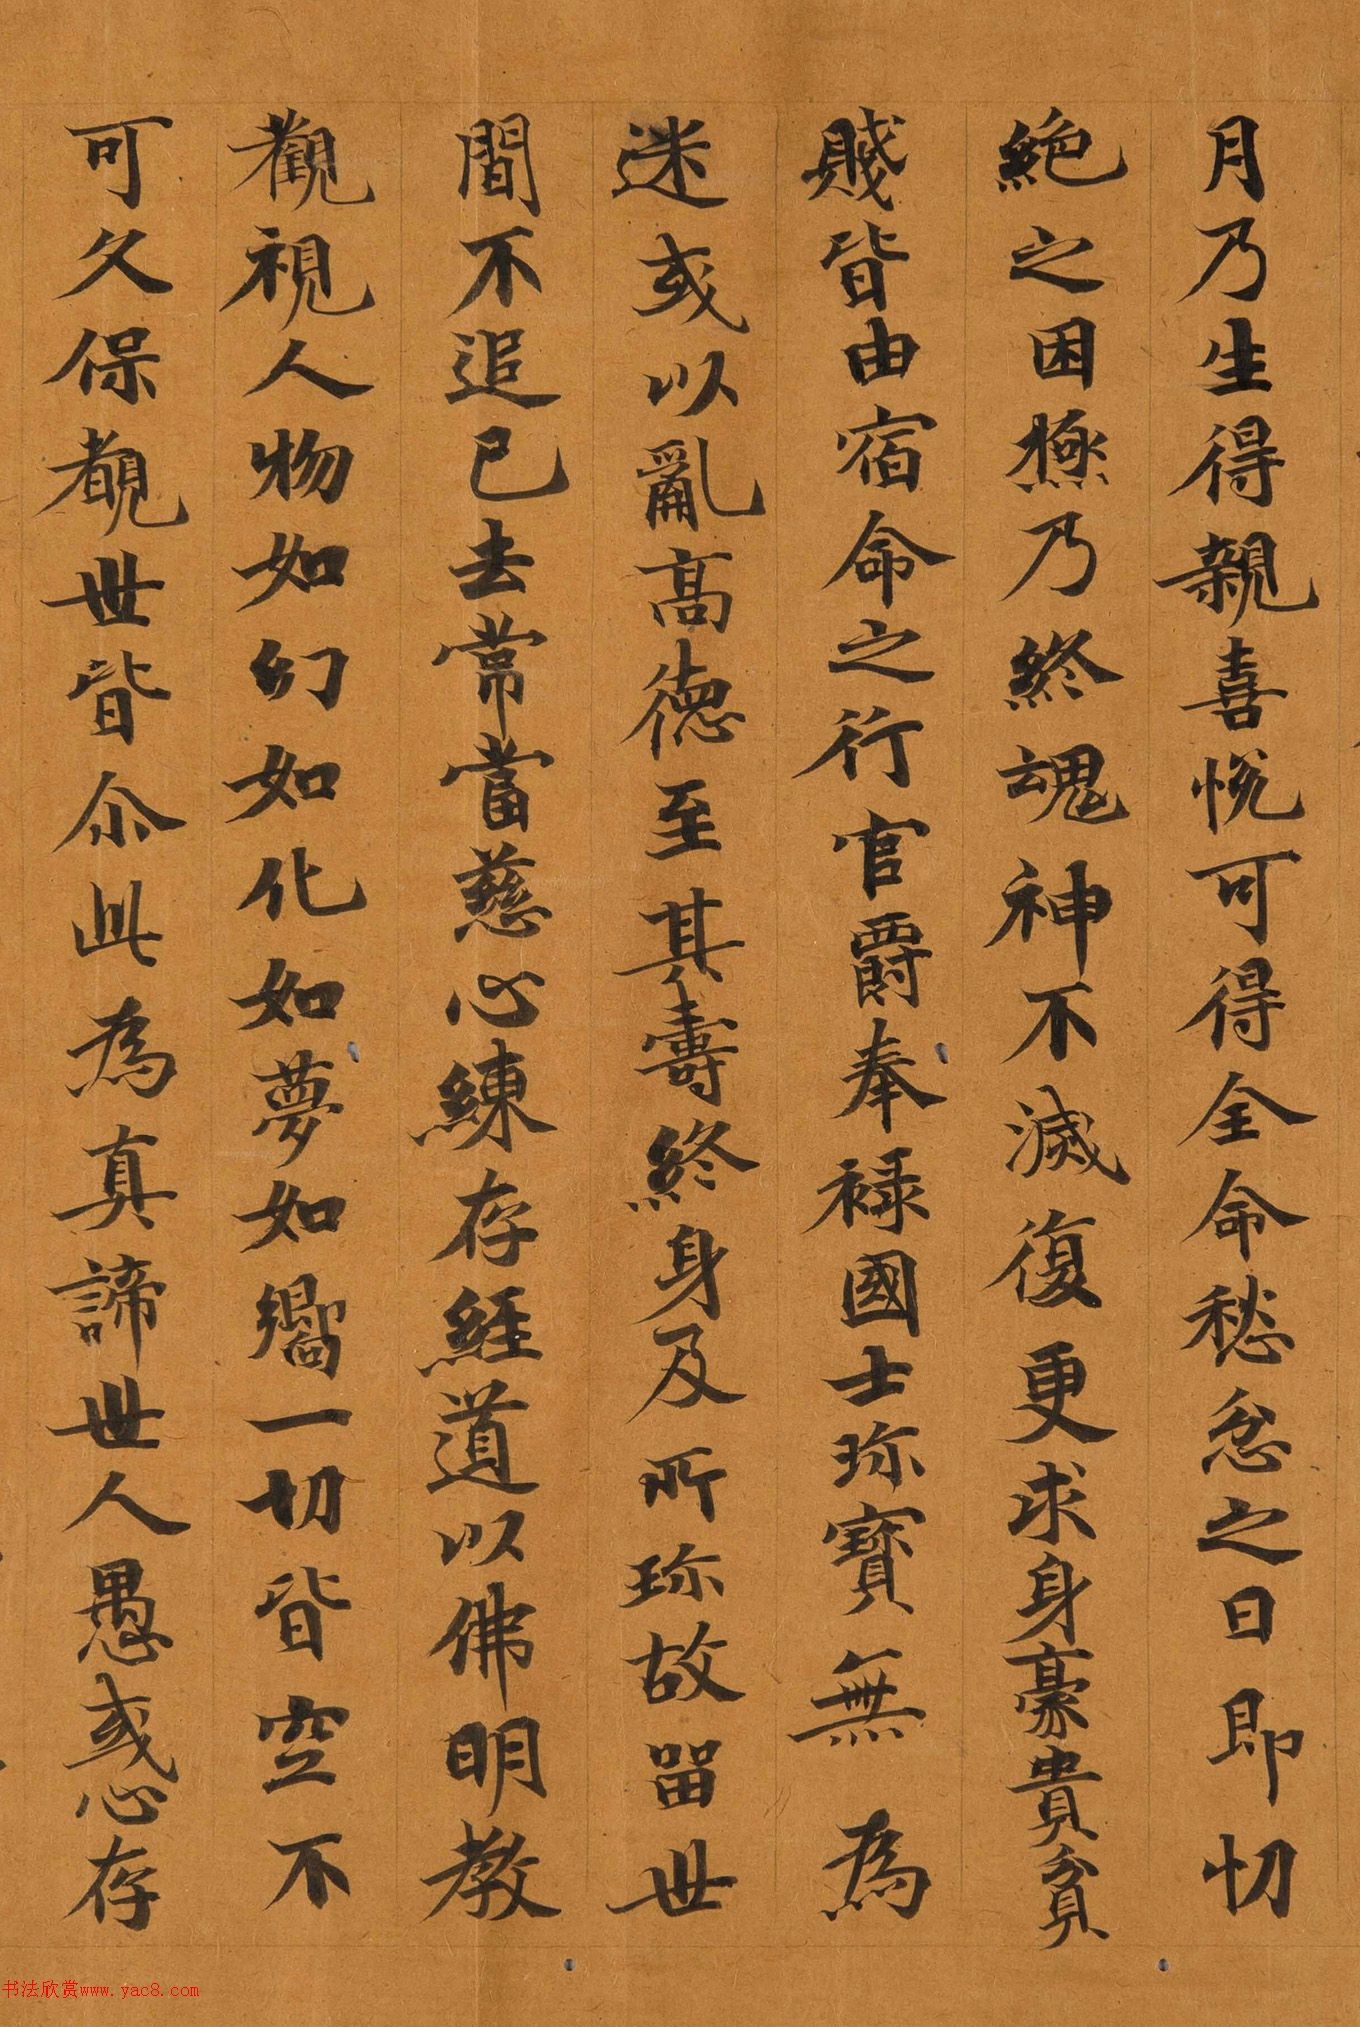 月乃生得親喜悅可得全命愁忿之日即切
絶之困極乃終魂神不滅復更求身豪貴貧
賤皆由宿命之行官爵奉禄國士珎寳無為
迷或以亂髙徳至其壽終身及所珎故留世
間不追已去常當慈心練存經道以佛明教
觀視人物如幻如化如夢如嚮一切皆空不
可久保覩世皆尒此為真諦世人愚或心存
书法欣赏www.yac8.com